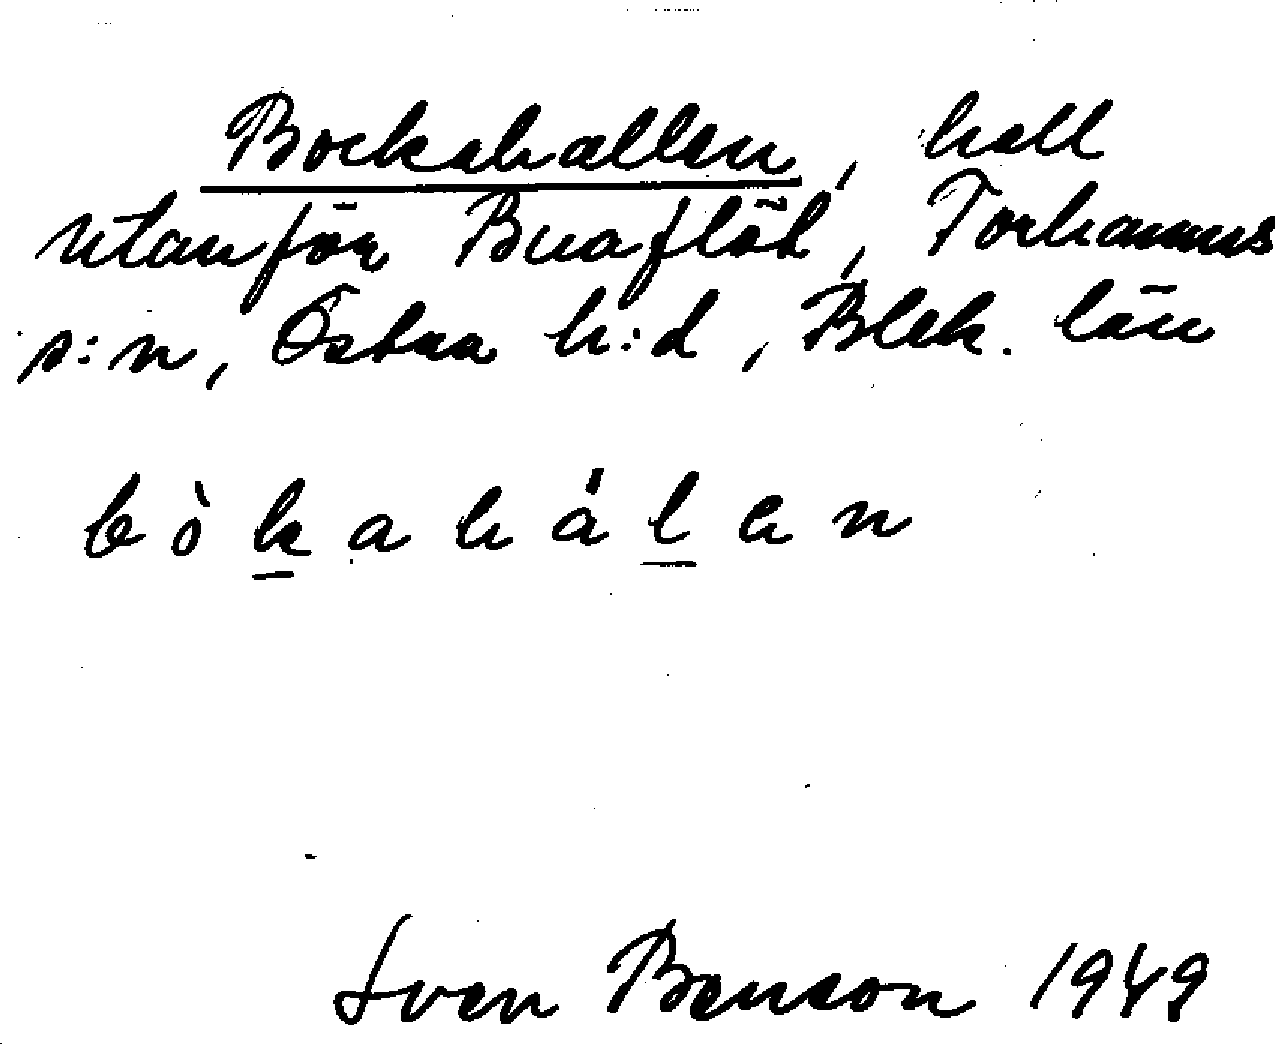 Bockahallen, hall
utanför Buaflöt, Torhamns
s:n, Östra h:d, Blek. län
bòkahálen
Sven Benson 1949